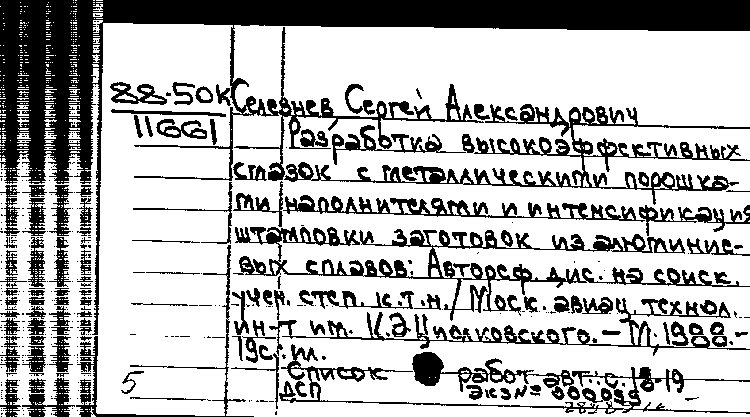 88-50К Селезнев Сергей Александрович
11661
Разработка высокоэффективных
смазок с металлическими порошка-
ми наполнителями и интенсификация
штамповки заготовок из алюминие-
вых сплавов: Автореф. дис. на соиск.
учен. степ. к.т.н. / Моск. авиац. технол.
ин-т им. К.Э.Циолковского. — М., 1988. —
19с.: ил.
Список работ авт.: с. 18-19
5 ДСП Экз № 000099